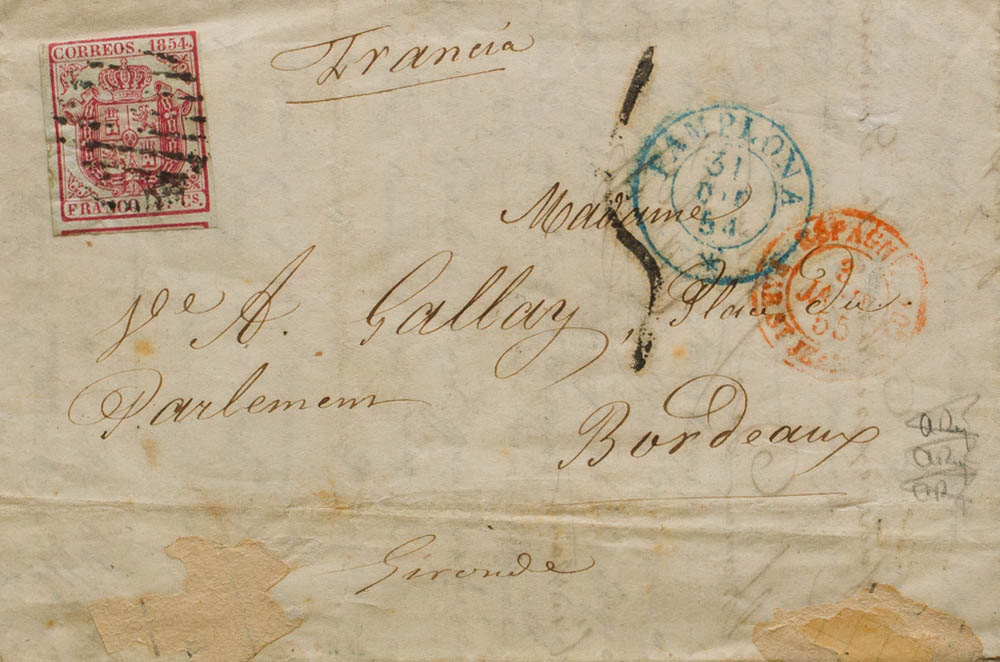 CORREOS. 1854.
FRANCO. CS.
Francia
PAMPLONA
31
DIC
54
Madame
ESPAGNE
3
JANV
55
Ve A. Gallay, Place du
Parlement
Bordeaux
Gironde